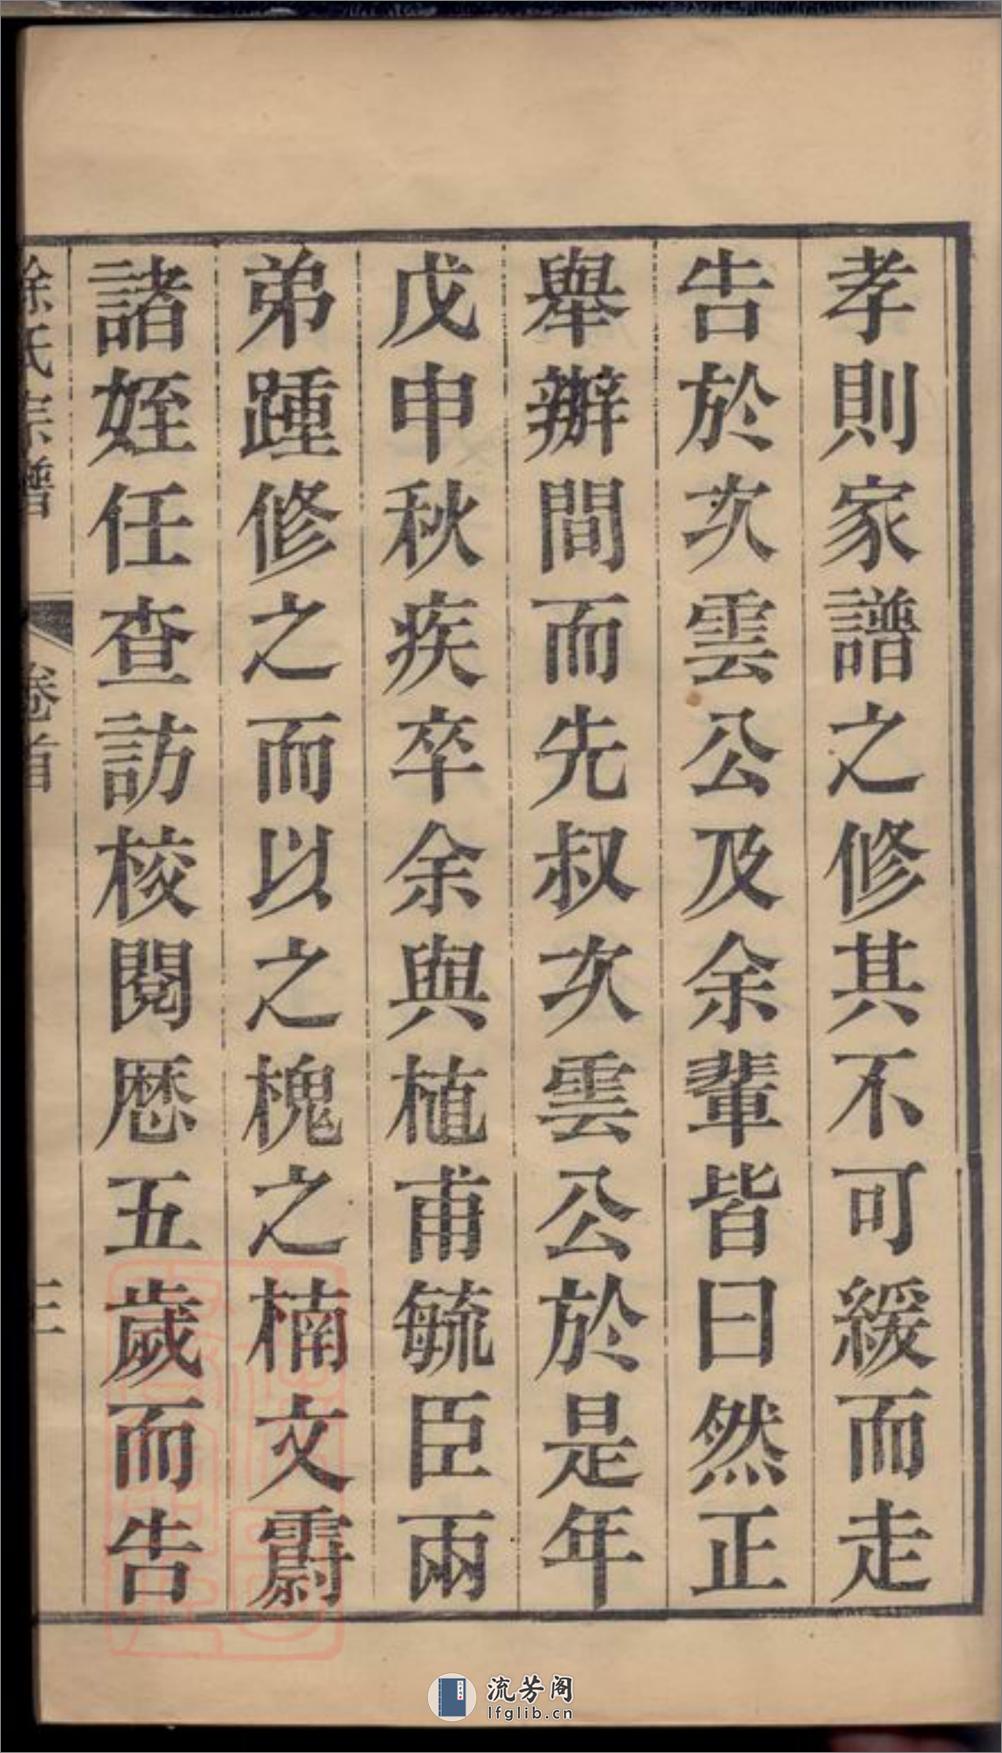 孝則家譜之修其不可緩而走
告於次雲公及余輩皆曰然正
舉辦間而先叔次雲公於是年
戊申秋疾卒余與植甫毓臣兩
弟踵修之而以之槐之楠文霨
諸姪任查訪校閱歷五歲而告
徐氏宗譜
卷首
三
流芳阁
lfglib.cn